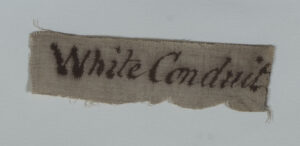 White Conduit